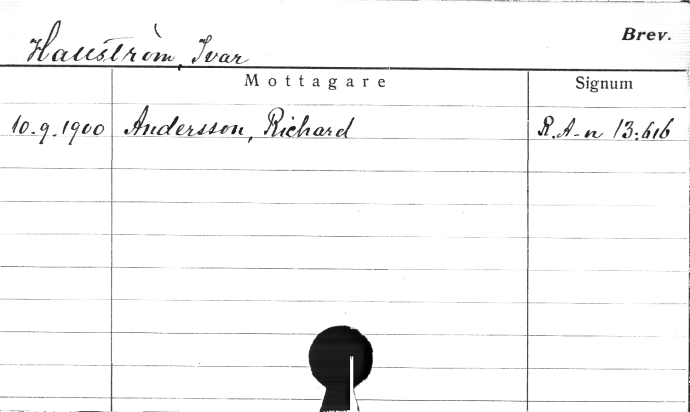 Brev.
Hallström, Ivar
Mottagare Signum
10.9.1900 Andersson, Richard R.A-n 13:616